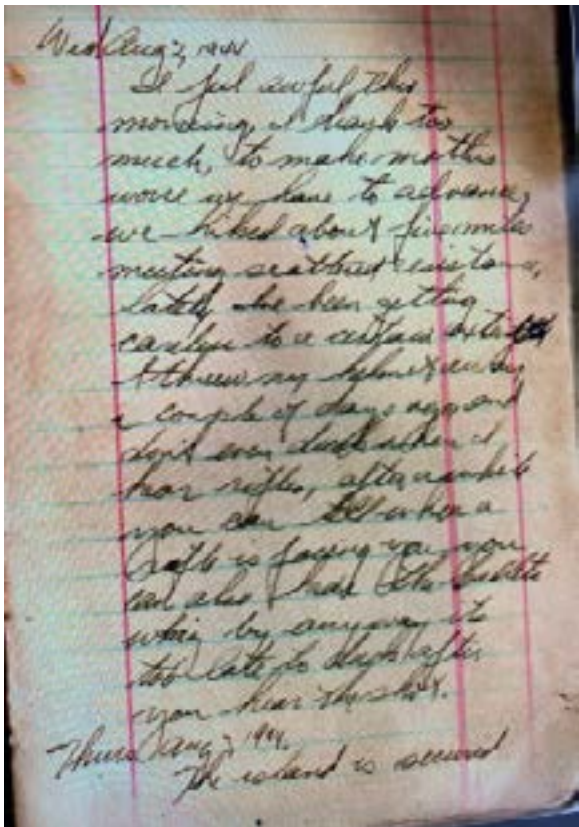 Wed Aug 2, 1944
I feel awful this
morning, I drank too
much, to make matters
worse we have to advance,
we hiked about five miles
meeting scattered resistance,
lately I've been getting
careless to a certain extent
I threw my helmet away
a couple of days ago and
don't even duck when I
hear rifles, after awhile
you can tell when a
rifle is facing you you
can also hear the bullets
whiz by anyway its
too late to duck after
you hear the shot.
Thurs Aug 3 1944.
The island is secured